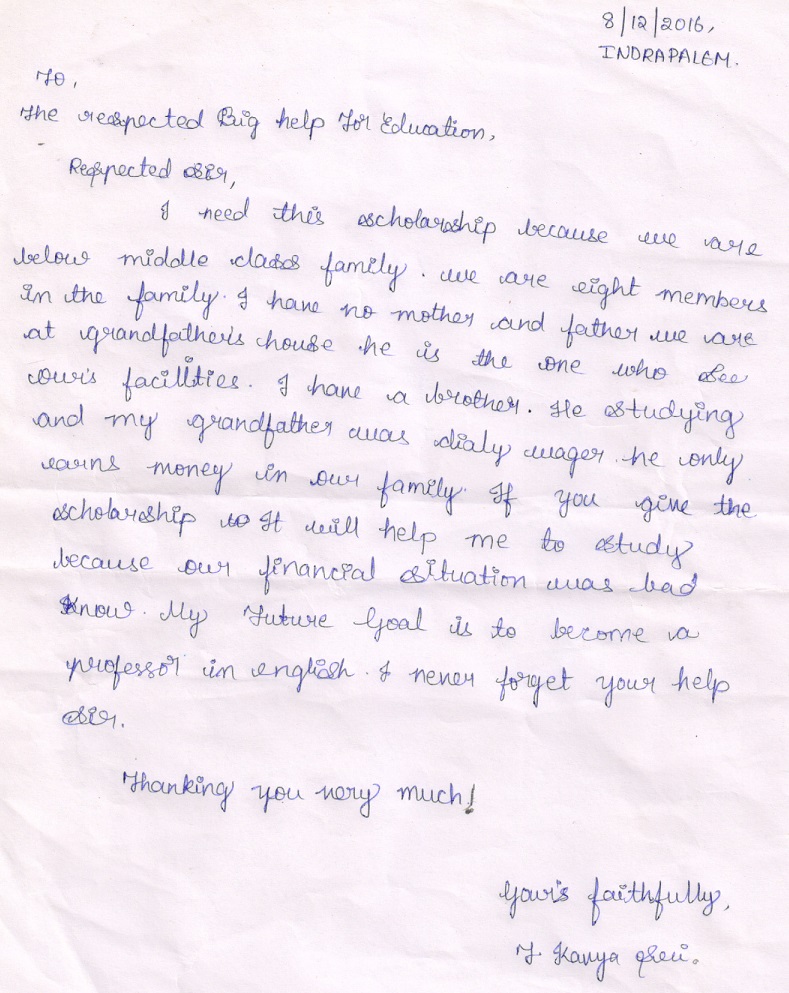 8/12/2016,
INDRAPALEM.
To,
The respected Big help For Education,
Respected sir,
I need this scholarship because we are
below middle class family. we are eight members
in the family. I have no mother and father we are
at grandfather's house he is the one who see
our's facilities. I have a brother. He studying
and my grandfather was dialy wager he only
earns money in our family. If you give the
scholarship to It will help me to study
because our financial situation was bad
know. My Future Goal is to become a
professor in english. I never forget your help
sir.
Thanking you very much!
Your's faithfully,
T. Kavya